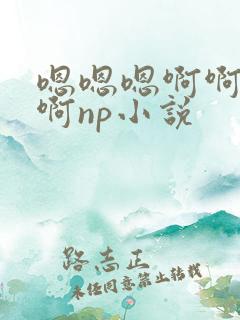 嗯嗯嗯啊啊
啊np小説
路志正
未任同意禁止转载